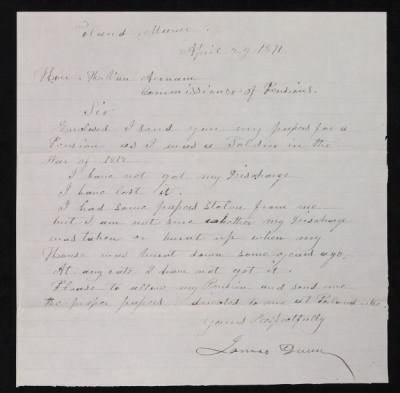 Poland Maine
April 29 1871
Hon. H. Van Aernam
Commissioner of Pensions.
Sir
Enclosed I send you my papers for a
Pension as I was a Soldier in the
War of 1812
I have not got my Discharge
I have lost it.
I had some papers stolen from me
but I am not sure whether my Discharge
was taken or burnt up when my
House was burnt down some years ago.
At any rate I have not got it.
Please to allow my Pension and send me
the proper papers directed to me at Poland Me
Yours Respectfully
James